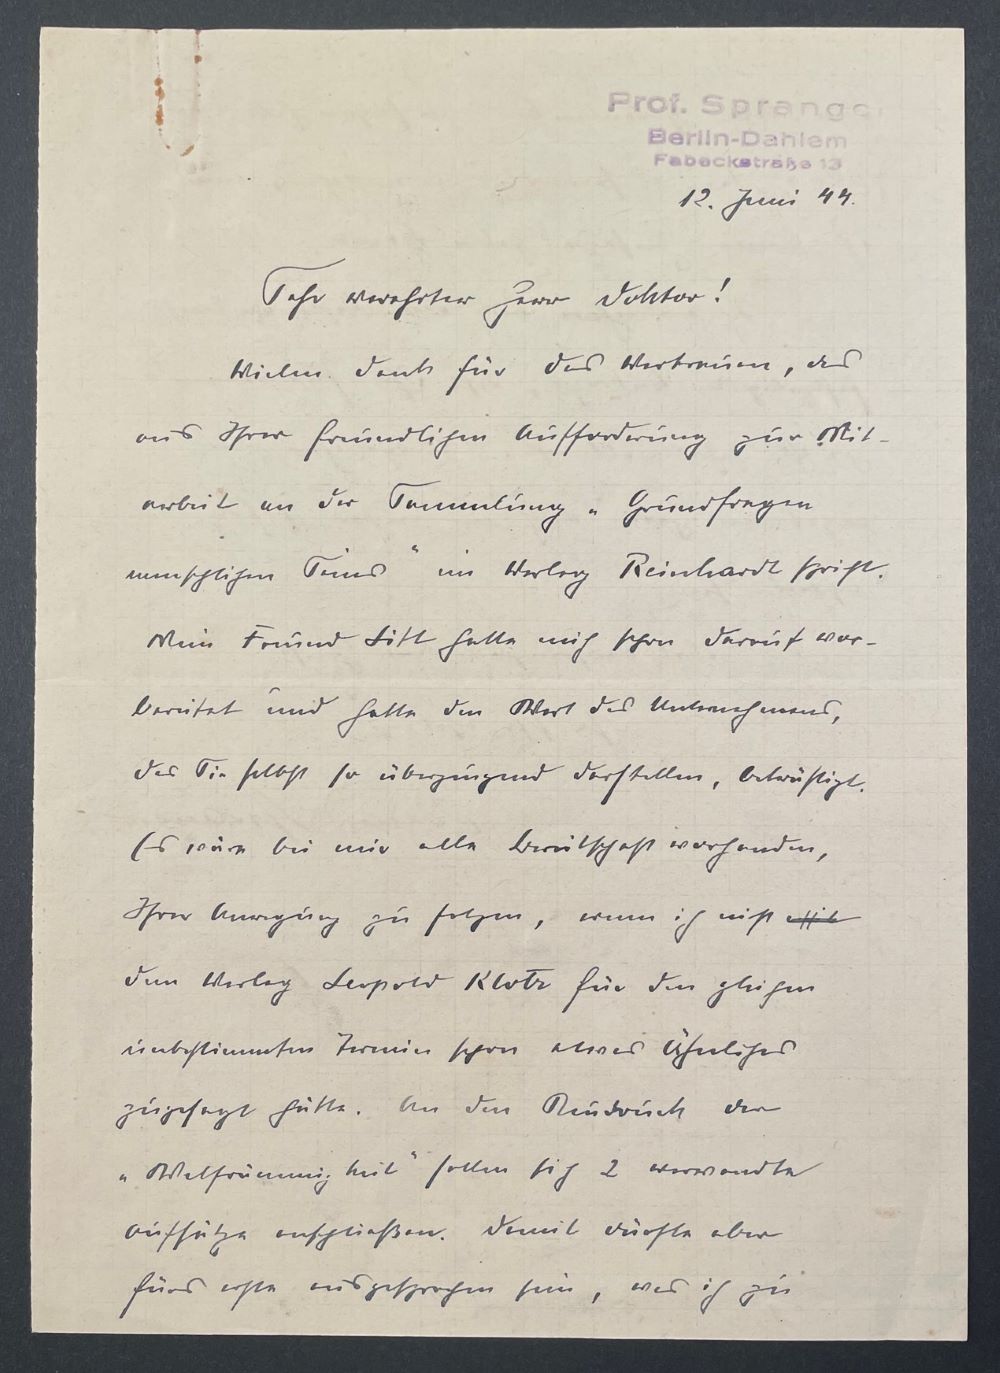 Prof. Sprange
Berlin-Dahlem
Fabeckstraße 13
12. Juni 44.
Sehr verehrter Herr Doktor!
Vielen Dank für das Vertrauen, das
aus Ihrer freundlichen Aufforderung zur Mit-
arbeit an der Sammlung „Grundfragen
menschlichen Seins" im Verlag Reinhardt spricht.
Mein Freund Litt hatte mich schon darauf vor-
bereitet und hatte den Wert des Unternehmens,
das Sie selbst so überzeugend darstellen, bekräftigt.
Es wäre bei mir alle Bereitschaft vorhanden,
Ihrer Anregung zu folgen, wenn ich nicht
dem Verlag Leopold Klotz für den gleichen
unbestimmten Termin schon etwas Ähnliches
zugesagt hätte. An den Neudruck der
„Weltfrömmigkeit" sollen sich 2 verwandte
Aufsätze anschließen. Damit dürfte aber
fürs erste ausgesprochen sein, was ich zu